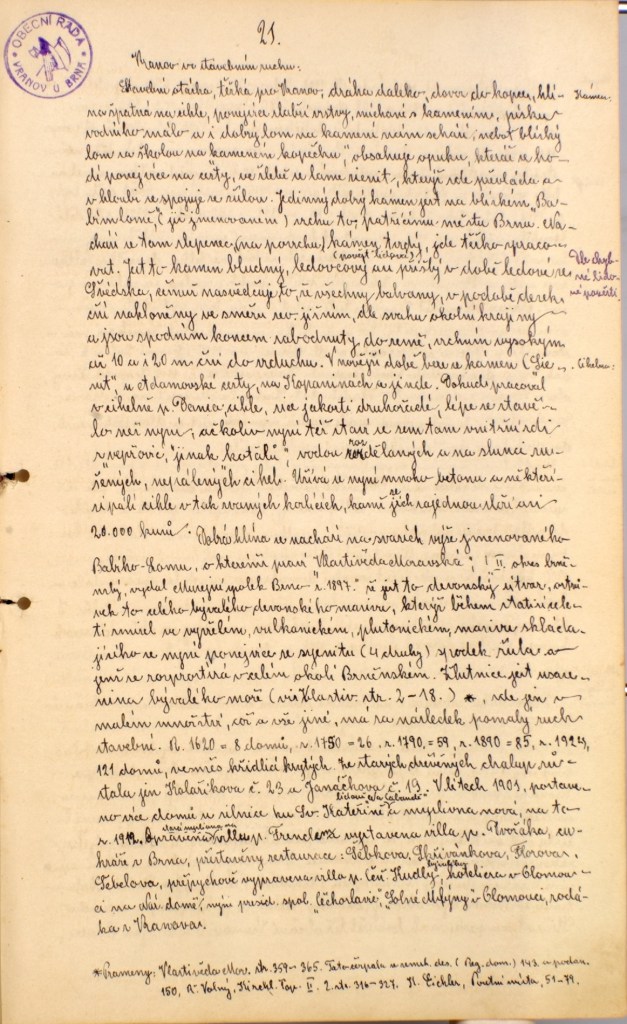 21.
OBECNÍ RADA
VRANOV U BRNA
Vranov ve stavebním ruchu:
Stavební otázka, těžká pro Vranov; dráha daleko, dovoz do kopce, hlí-
na špatná na cihle, ponejvíce slabší vrstvy, míchaná s kamením, písku
vodního málo a i dobrý lom na kamení nám schází, neboť blízký
lom za školou na kameném kopečku, obsahuje opuku, která se ho-
dí ponejvíce na cesty, ve žlebě se láme sienit, který zde převládá a
v hloubi se spojuje se žulou. Jedinný dobrý kámen jest na blízkém "Ba-
bím lomě," (již jmenovaném) vrchu to, patřícímu městu Brnu. Na-
chází se tam slepenec, (na povrchu) kámen tvrdý, jde těžko spraco-
vat. Jest to kámen bludný, ledovcový (pověst lidová) an přišlý v době ledové ze
Švédska, čemuž nasvědčuje to, že všechny balvany, v podobě desek
ční nakloněny ve směru sev. jižním, dle svahu okolní krajiny
a jsou spodním koncem zabodnuty do země, vrchním vysokým
až 10 a i 20 m. ční do vzduchu. V novější době bere se kámen (Sie-
nit) u Adamovské cesty, na Kopaninách a jinde. Pokud pracoval
v cihelně p. Dania, cihle, sice jakosti druhořadé, lépe se stavě-
lo než nyní; ačkoliv nyní též staví se sem tam vnitřní zdi
z vepřovic, "jinak kotălů", vodou rozdělaných a na slunci su-
šených, nepálených cihel. Užívá se nyní mnoho betonu a někteří
si pálí cihle v tak zvaných kozlicích, kamž se jich najednou složí asi
20.000 kusů. Dobrá hlína se nachází na svazích výše jmenovaného
Babího-Lomu, o kterémž praví "Vlastivěda Moravská", II. okres brněn-
ský, vydal Musejní spolek Brno "r. 1897." že jest to devonský útvar, ostrů-
vek to celého bývalého devonského masivu, kterýž během statisíce le-
tí zmizel ve vyvřelém, vulkanickém, plutonickém, masivu skláda-
jícího se nyní ponejvíce ze syenitu (4 druhy) zrodek žula a
jenž se rozprostírá v celém okolí Brněnském. Žlutnice jest usaze-
nina bývalého moře (viz Vlastiv. str. 2-18.) *, zde jen v
malém množství, což a vše jiné, má za následek pomalý ruch
stavební. R. 1620 = 8 domů, r. 1750 = 26, r. 1790, = 59, r. 1890 = 85, r. 1922,
121 domů, vesměs břidlicí krytých. Ze starých dřevěných chalup zů-
stala jen Kolaříkova č. 23 a Janáčkova č. 19. V létech 1901, postave-
no více domů u silnice ku Sv. Kateřině a myslivna nová, na to
r. 1912. Opravena villa p. Trenclera vystavena villa p. Dvořáka, cu-
kráře z Brna, přistavěny restaurace: Sebkova, Skřivánkova, Florova,
Sebelova, přepychově vypravena villa p. Čeň. Kudly, hoteliera v Olomou-
ci na Nár. domě, nyní presid. spol. "Čechoslavie", "Solné Mlýny" v Olomouci, rodá-
ka z Vranova.
Kámen:
Dle chyb-
né lido-
vé pověsti.
Cihelna:
* Prameny: Vlastivěda Mor. str. 359-365. Tato čerpala z zemsk. des. (Reg. dom.) 143. a podan.
150, Ř. Volný, Kirchl. Top. II. 2. str. 316-327. K. Eichler, Poutní místa, 51-79.